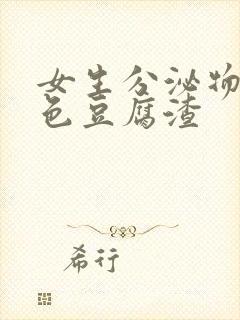 女生分泌物
色豆腐渣
希行